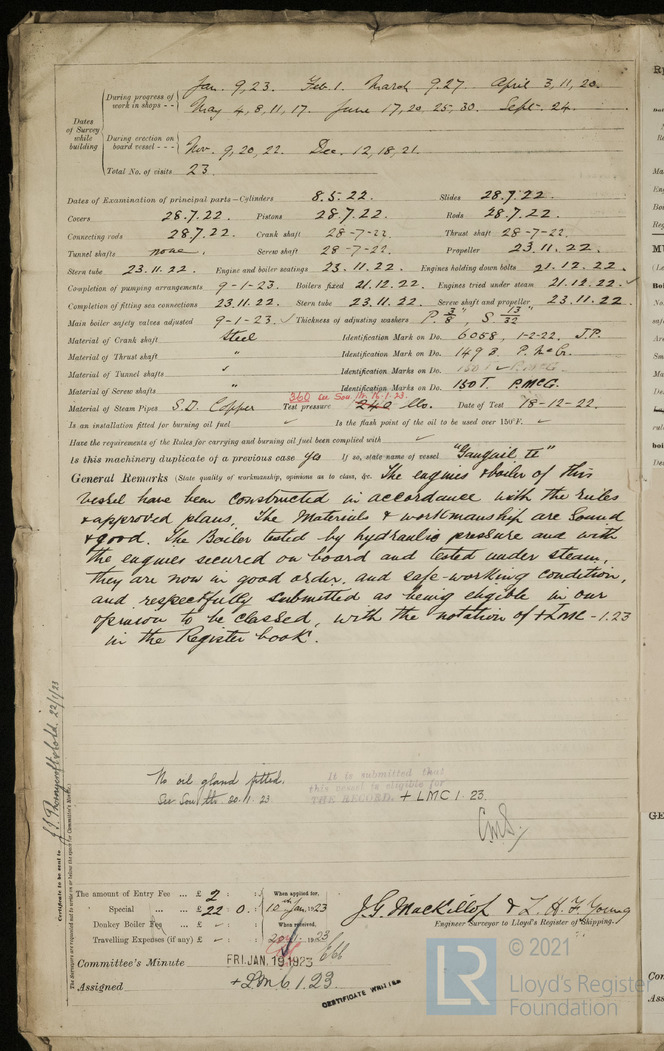 Dates of Survey while building
During progress of work in shops - - Jan. 9, 23. Feb. 1. March 9. 27. April 3, 11, 20.
May 4, 8, 11, 17. June 17, 20, 25, 30. Sept. 24.
During erection on board vessel - - - Nov. 9, 20, 22. Dec. 12, 18, 21.
Total No. of visits 23.
Dates of Examination of principal parts—Cylinders 8.5.22. Slides 28.7.22.
Covers 28.7.22. Pistons 28.7.22. Rods 28.7.22.
Connecting rods 28.7.22. Crank shaft 28-7-22. Thrust shaft 28-7-22.
Tunnel shafts none. Screw shaft 28-7-22. Propeller 23.11.22.
Stern tube 23.11.22. Engine and boiler seatings 23.11.22. Engines holding down bolts 21.12.22.
Completion of pumping arrangements 9-1-23. Boilers fixed 21.12.22. Engines tried under steam 21.12.22.
Completion of fitting sea connections 23.11.22. Stern tube 23.11.22. Screw shaft and propeller 23.11.22.
Main boiler safety valves adjusted 9-1-23. Thickness of adjusting washers P. 3/8" S 13/32"
Material of Crank shaft Steel Identification Mark on Do. 6058, 1-2-22, J.P.
Material of Thrust shaft " Identification Mark on Do. 149 P. McG.
Material of Tunnel shafts Identification Marks on Do.
Material of Screw shafts " Identification Marks on Do. 150 T. P.McG.
Material of Steam Pipes S.D. Copper Test pressure 240 lbs. 360 See 16.1.23. Date of Test 18-12-22.
Is an installation fitted for burning oil fuel Is the flash point of the oil to be used over 150°F.
Have the requirements of the Rules for carrying and burning oil fuel been complied with
Is this machinery duplicate of a previous case Yes If so, state name of vessel
General Remarks (State quality of workmanship, opinions as to class, &c. The engines & boiler of this
vessel have been constructed in accordance with the rules
& approved plans. The Materials & workmanship are Sound
& good. The Boiler tested by hydraulic pressure and with
the engines secured on board and tested under steam,
they are now in good order, and safe working condition,
and respectfully submitted as being eligible in our
opinion to be classed, with the notation of +LMC - 1.23
in the Register book.
No oil gland fitted.
It is submitted that
this vessel is eligible for
THE RECORD. + LMC 1.23.
Certificate to be sent to
The Surveyors are requested not to write on or below the space for Committee's Minute.
The amount of Entry Fee ... £ 2 : : When applied for,
Special ... ... £ 22 : 0 : 10th Jan. 1923
Donkey Boiler Fee ... £ - : : When received,
Travelling Expenses (if any) £ - : : 1923
J.G. MacKillop & L.H.F. Young
Engineer Surveyor to Lloyd's Register of Shipping.
Committee's Minute FRI. JAN. 19 1923
Assigned + LMC 1.23
CERTIFICATE WRITTEN
LR
© 2021
Lloyd's Register
Foundation